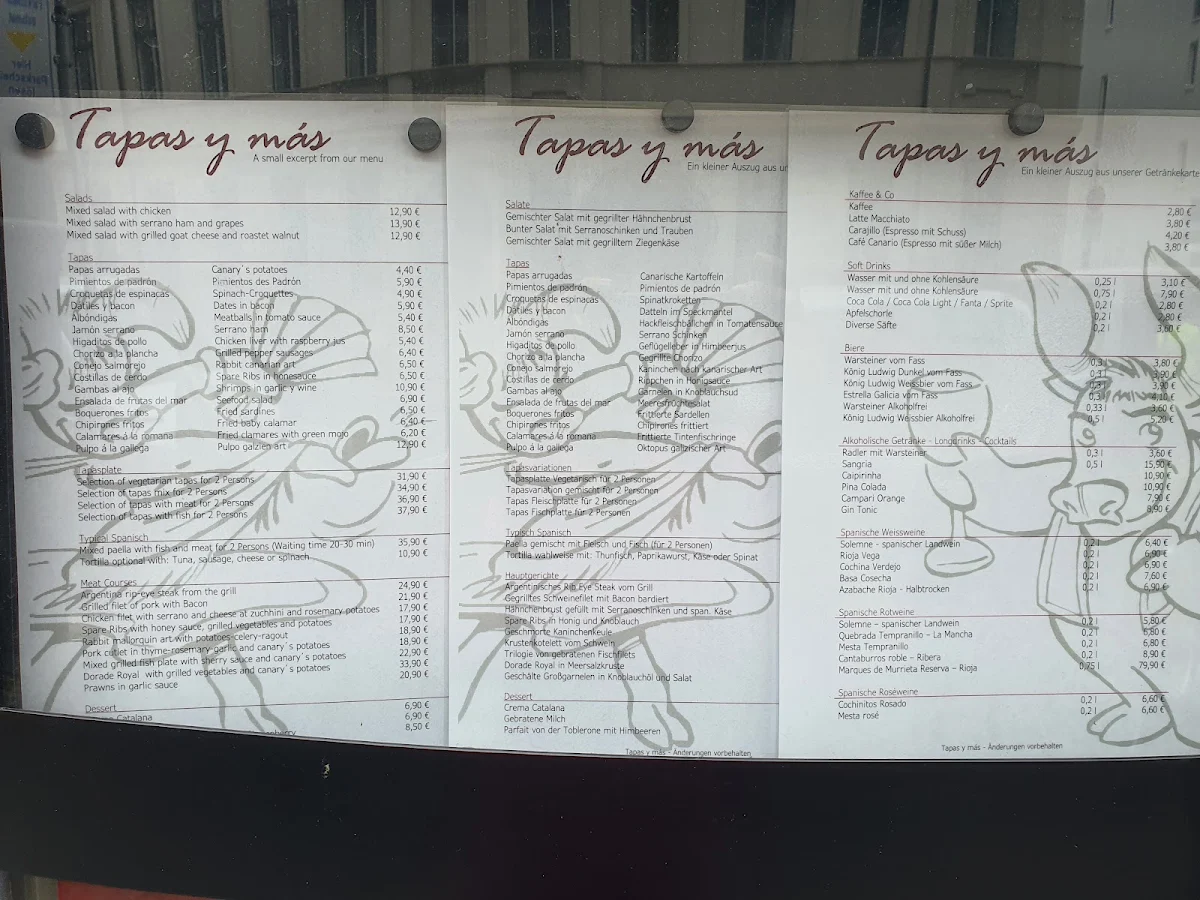 Tapas y más
A small excerpt from our menu
Salads
Mixed salad with chicken 12,90 €
Mixed salad with serrano ham and grapes 13,90 €
Mixed salad with grilled goat cheese and roastet walnut 12,90 €
Tapas
Papas arrugadas Canary´s potatoes 4,40 €
Pimientos de padrón Pimientos des Padrón 5,90 €
Croquetas de espinacas Spinach-Croquettes 4,90 €
Dátiles y bacon Dates in bacon 5,90 €
Albóndigas Meatballs in tomato sauce 5,40 €
Jamón serrano Serrano ham 8,50 €
Higaditos de pollo Chicken liver with raspberry jus 5,40 €
Chorizo a la plancha Grilled pepper sausages 6,40 €
Conejo salmorejo Rabbit canarian art 6,50 €
Costillas de cerdo Spare Ribs in honesauce 6,50 €
Gambas al ajo Shrimps in garlic y wine 10,90 €
Ensalada de frutas del mar Seefood salad 6,90 €
Boquerones fritos Fried sardines 6,50 €
Chipirones fritos Fried baby calamar 6,40 €
Calamares á la romana Fried clamares with green mojo 6,20 €
Pulpo á la gallega Pulpo galzien art 12,90 €
Tapasplate
Selection of vegetarian tapas for 2 Persons 31,90 €
Selection of tapas mix for 2 Persons 34,90 €
Selection of tapas with meat for 2 Persons 36,90 €
Selection of tapas with fish for 2 Persons 37,90 €
Typical Spanisch
Mixed paella with fish and meat for 2 Persons (Waiting time 20-30 min) 35,90 €
Tortilla optional with: Tuna, sausage, cheese or spinach 10,90 €
Meat Courses
Argentina rip-eye steak from the grill 24,90 €
Grilled filet of pork with Bacon 21,90 €
Chicken filet with serrano and cheese at zuchhini and rosemary potatoes 17,90 €
Spare Ribs with honey sauce, grilled vegetables and potatoes 17,90 €
Rabbit mallorquin art with potatoes-celery-ragout 18,90 €
Pork cutlet in thyme-rosemary-garlic and canary´s potatoes 18,90 €
Mixed grilled fish plate with sherry sauce and canary´s potatoes 22,90 €
Dorade Royal with grilled vegetables and canary´s potatoes 33,90 €
Prawns in garlic sauce 20,90 €
Dessert 6,90 €
Catalana 6,90 €
8,50 €
Tapas y más
Ein kleiner Auszug aus
Salate
Gemischter Salat mit gegrillter Hähnchenbrust
Bunter Salat mit Serranoschinken und Trauben
Gemischter Salat mit gegrilltem Ziegenkäse
Tapas
Papas arrugadas Canarische Kartoffeln
Pimientos de padrón Pimientos de padrón
Croquetas de espinacas Spinatkroketten
Dátiles y bacon Datteln im Speckmantel
Albóndigas Hackfleischbällchen in Tomatensauce
Jamón serrano Serrano Schinken
Higaditos de pollo Geflügelleber in Himbeerjus
Chorizo a la plancha Gegrillte Chorizo
Conejo salmorejo Kaninchen nach kanarischer Art
Costillas de cerdo Rippchen in Honigsauce
Gambas al ajo Garnelen in Knoblauchsud
Ensalada de frutas del mar Meeresfrüchtesalat
Boquerones fritos Frittierte Sardellen
Chipirones fritos Chipirones frittiert
Calamares á la romana Frittierte Tintenfischringe
Pulpo á la gallega Oktopus galizischer Art
Tapasvariationen
Tapasplatte Vegetarisch für 2 Personen
Tapasvariation gemischt für 2 Personen
Tapas Fleischplatte für 2 Personen
Tapas Fischplatte für 2 Personen
Typisch Spanisch
Paella gemischt mit Fleisch und Fisch (für 2 Personen)
Tortilla wahlweise mit: Thunfisch, Paprikawurst, Käse oder Spinat
Hauptgerichte
Argentinisches Rib Eye Steak vom Grill
Gegrilltes Schweinefilet mit Bacon bardiert
Hähnchenbrust gefüllt mit Serranoschinken und span. Käse
Spare Ribs in Honig und Knoblauch
Geschmorte Kaninchenkeule
Krustenkotelett vom Schwein
Trilogie von gebratenen Fischfilets
Dorade Royal in Meersalzkruste
Geschälte Großgarnelen in Knoblauchöl und Salat
Dessert
Crema Catalana
Gebratene Milch
Parfait von der Toblerone mit Himbeeren
Tapas y más - Änderungen vorbehalten
Tapas y más
Ein kleiner Auszug aus unserer Getränkekarte
Kaffee & Co
Kaffee 2,80 €
Latte Macchiato 3,80 €
Carajillo (Espresso mit Schuss) 4,20 €
Café Canario (Espresso mit süßer Milch) 3,80 €
Soft Drinks
Wasser mit und ohne Kohlensäure 0,25 l 3,10 €
Wasser mit und ohne Kohlensäure 0,75 l 7,90 €
Coca Cola / Coca Cola Light / Fanta / Sprite 0,2 l 2,80 €
Apfelschorle 0,2 l 2,80 €
Diverse Säfte 0,2 l 3,60 €
Biere
Warsteiner vom Fass 0,3 l 3,80 €
König Ludwig Dunkel vom Fass 0,3 l 3,90 €
König Ludwig Weissbier vom Fass 0,3 l 3,90 €
Estrella Galicia vom Fass 0,3 l 4,10 €
Warsteiner Alkoholfrei 0,33 l 3,60 €
König Ludwig Weissbier Alkoholfrei 0,5 l 5,20 €
Alkoholische Getränke - Longdrinks - Cocktails
Radler mit Warsteiner 0,3 l 3,60 €
Sangria 0,5 l 15,90 €
Caipirinha 10,90 €
Pina Colada 10,90 €
Campari Orange 7,90 €
Gin Tonic 8,90 €
Spanische Weissweine
Solemne - spanischer Landwein 0,2 l 6,40 €
Rioja Vega 0,2 l 6,90 €
Cochina Verdejo 0,2 l 6,90 €
Basa Cosecha 0,2 l 7,60 €
Azabache Rioja - Halbtrocken 0,2 l 6,90 €
Spanische Rotweine
Solemne - spanischer Landwein 0,2 l 5,80 €
Quebrada Tempranillo - La Mancha 0,2 l 6,80 €
Mesta Tempranillo 0,2 l 6,80 €
Cantaburros roble - Ribera 0,2 l 8,90 €
Marques de Murrieta Reserva - Rioja 0,75 l 79,90 €
Spanische Roséweine
Cochinitos Rosado 0,2 l 6,60 €
Mesta rosé 0,2 l 6,60 €
Tapas y más - Änderungen vorbehalten